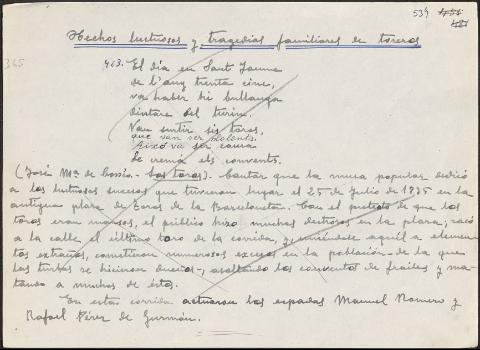 534
Hechos luctuosos y tragedias familiares de toreros
365
403. El día en Sant Jaume
de l'any trenta cinc,
va haber hi bullanga
dintare del turin.
Van surtir sis toros,
que van ser molents.
Aixó va ser causa
de cremá els convents.
(José Mª de Cossío.- Los toros). Cantar que la musa popular dedicó
a los luctuosos sucesos que tuvieron lugar el 25 de Julio de 1835 en la
antigua plaza de toros de la Barceloneta. Con el pretexto de que los
toros eran mansos, el público hizo muchos destrozos en la plaza; sacó
a la calle el último toro de la corrida, y uniéndose aquél a elemen-
tos extraños, cometieron numerosos excesos en la población - de la que
las turbas se hicieron dueñas -, asaltando los conventos de frailes y ma-
tando a muchos de éstos.
En esta corrida actuaron los espadas Manuel Romero y
Rafael Pérez de Guzmán.